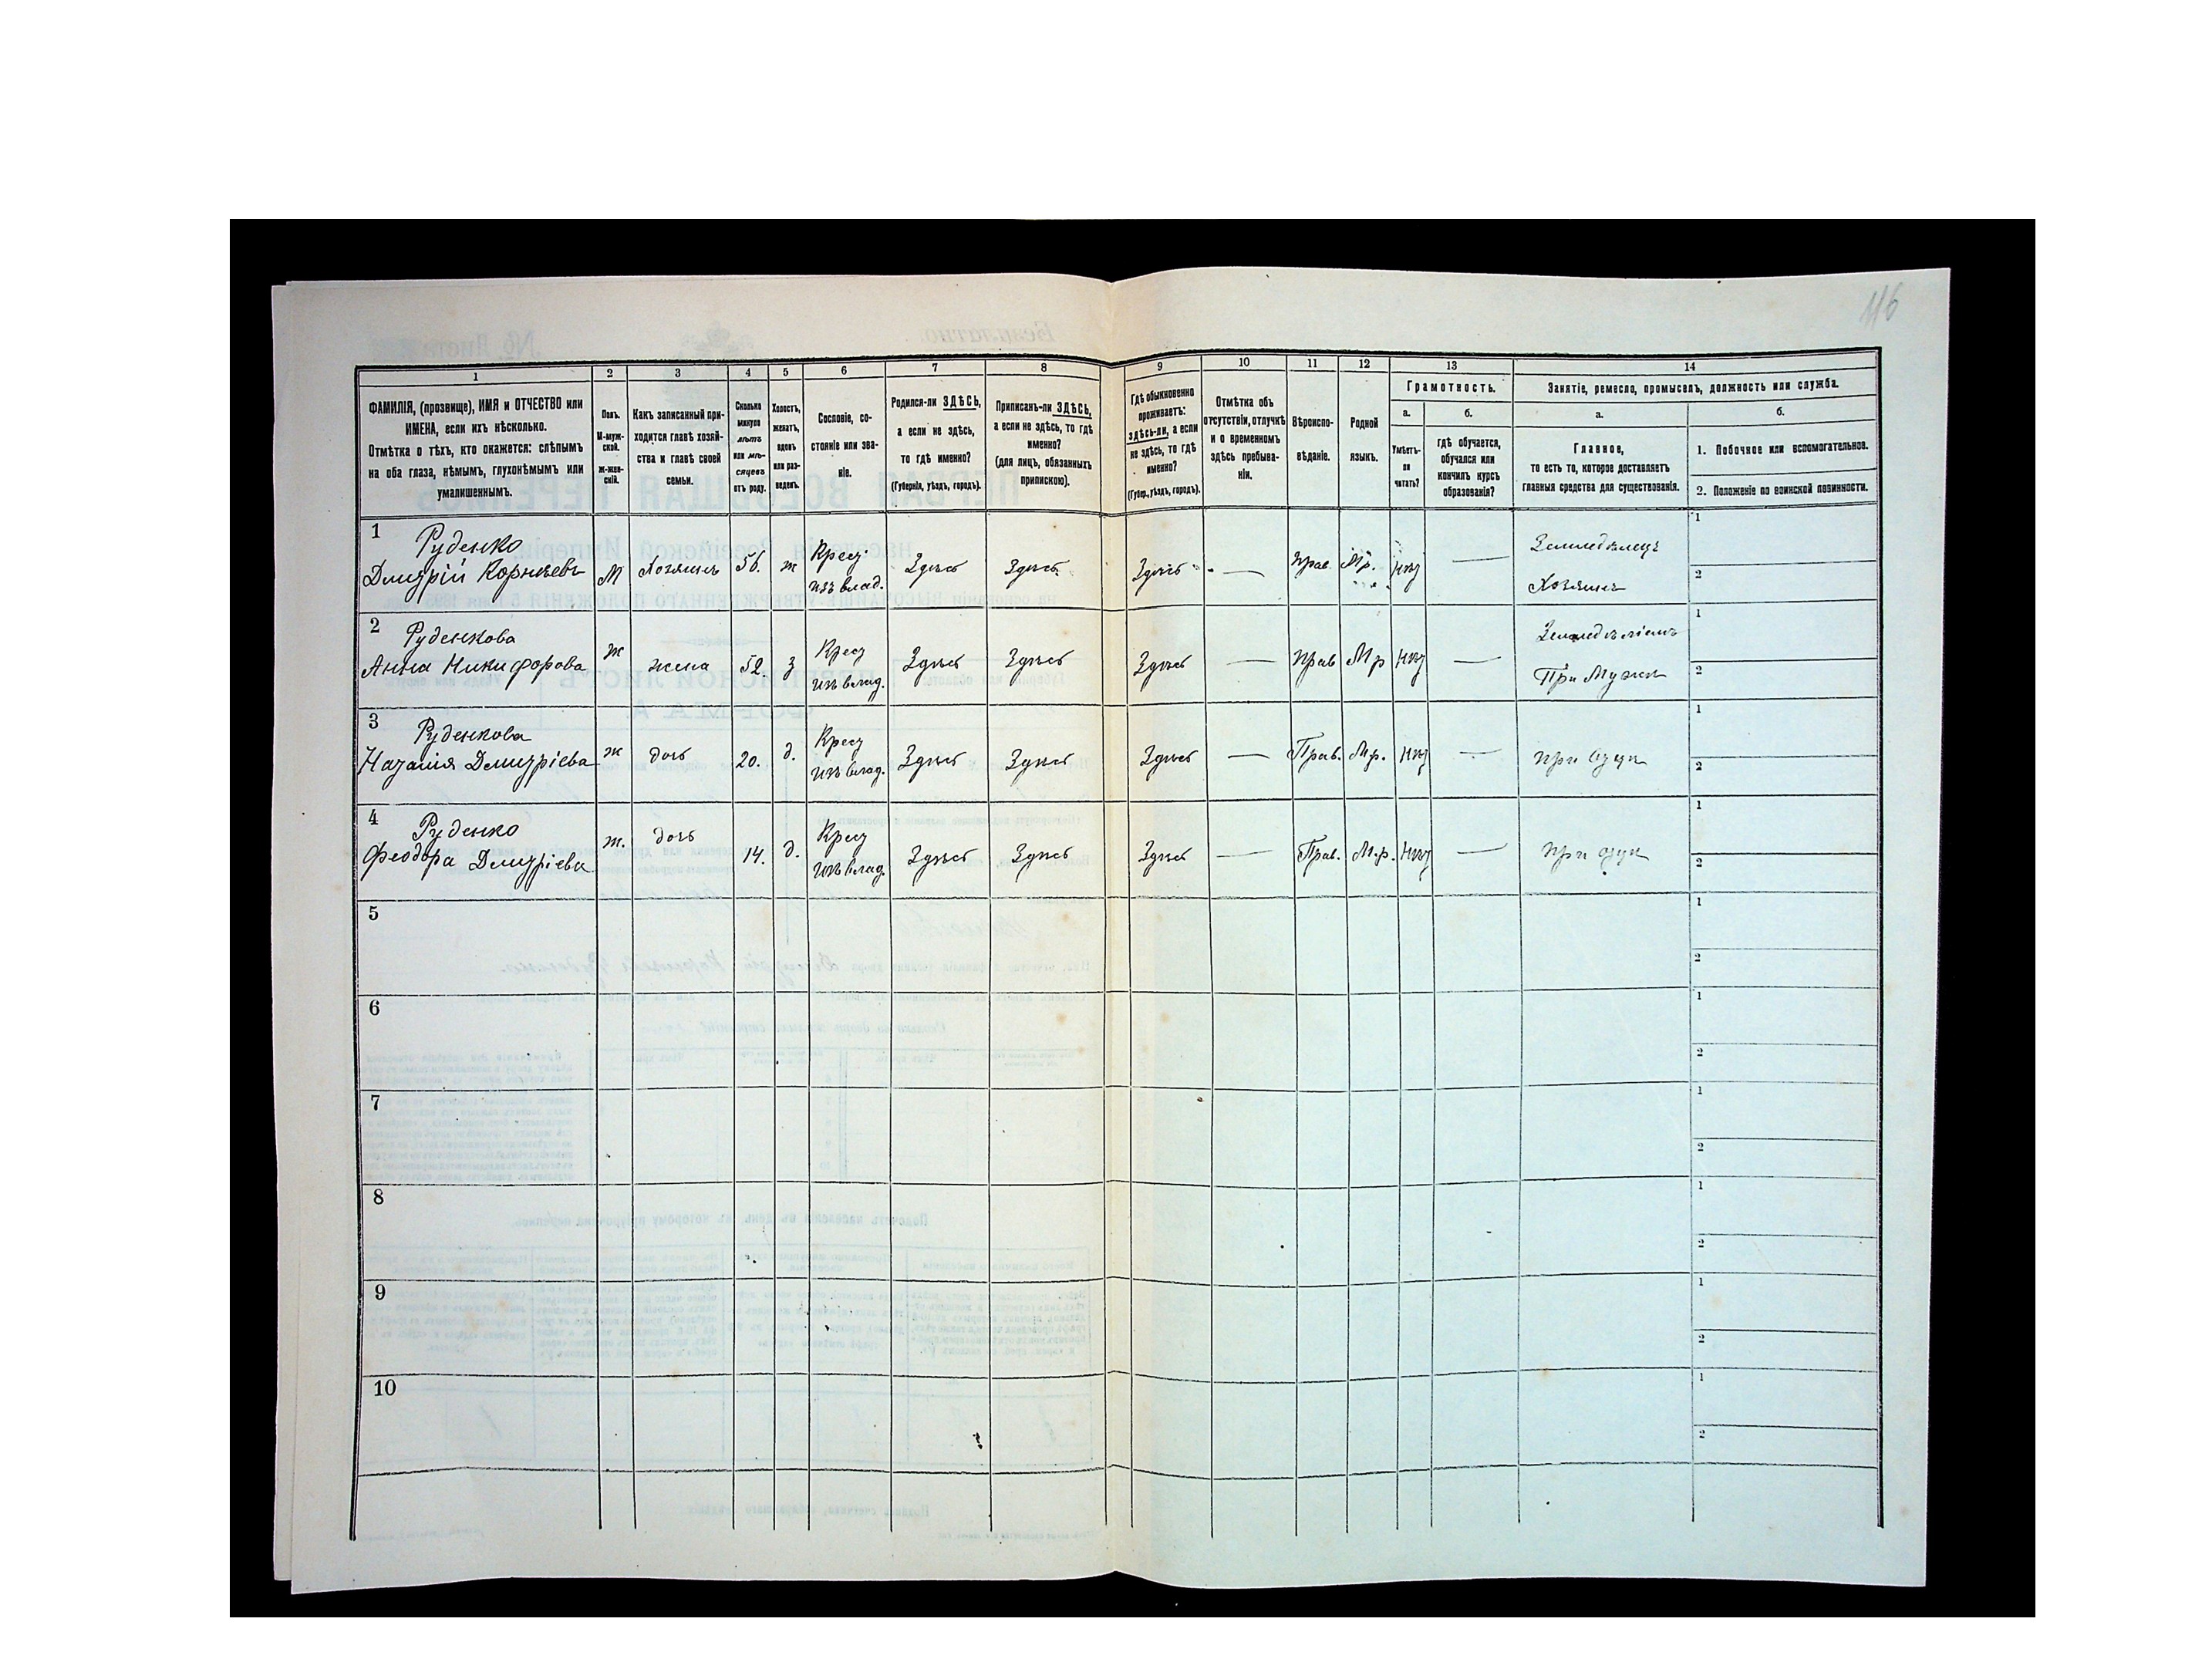 116
1
2
3
4
5
6
7
8
9
10
11
12
13
14
ФАМИЛІЯ, (прозвище), ИМЯ и ОТЧЕСТВО или
ИМЕНА, если ихъ нѣсколько.
Отмѣтка о тѣхъ, кто окажется: слѣпымъ
на оба глаза, нѣмымъ, глухонѣмымъ или
умалишеннымъ.
Полъ.
М-муж-
ской.
Ж-жен-
скій.
Какъ записанный при-
ходится главѣ хозяй-
ства и главѣ своей
семьи.
Сколько
минуло
лѣтъ
или мѣ-
сяцевъ
отъ роду.
Холостъ,
женатъ,
вдовъ
или раз-
веденъ.
Сословіе, со-
стояніе или зва-
ніе.
Родился-ли ЗДѢСЬ,
а если не здѣсь,
то гдѣ именно?
(Губернія, уѣздъ, городъ).
Приписанъ-ли ЗДѢСЬ,
а если не здѣсь, то гдѣ
именно?
(для лицъ, обязанныхъ
припискою).
Гдѣ обыкновенно
проживаетъ:
здѣсь-ли, а если
не здѣсь, то гдѣ
именно?
(Губер., уѣздъ, городъ).
Отмѣтка объ
отсутствіи, отлучкѣ
и о временномъ
здѣсь пребыва-
ніи.
Вѣроиспо-
вѣданіе.
Родной
языкъ.
Грамотность.
а.
б.
Умѣетъ-
ли
читать?
гдѣ обучается,
обучался или
кончилъ курсъ
образованія?
Занятіе, ремесло, промыселъ, должность или служба.
а.
б.
Главное,
то есть то, которое доставляетъ
главныя средства для существованія.
1. Побочное или вспомогательное.
2. Положеніе по воинской повинности.
1
Руденко
Дмитрій Корнѣевъ
М
Хозяинъ
56.
ж
Крест
изъ влад.
Здѣсь
Здѣсь
Здѣсь
—
Прав.
Мр.
Нѣт
—
Земледѣлецъ
Хозяинъ
1
2
2
Руденкова
Анна Никифорова
ж
жена
52.
з
Крест
изъ влад.
Здѣсь
Здѣсь
Здѣсь
—
Прав
Мр
Нѣт
—
При Мужѣ
1
2
3
Руденкова
Наталія Дмитріева
ж
дочь
20.
д.
Крест
изъ влад.
Здѣсь
Здѣсь
Здѣсь
—
Прав.
Мр.
Нѣт
—
при отцѣ
1
2
4
Руденко
Феодора Дмитріева
ж.
дочь
14.
д.
Крест
изъ влад.
Здѣсь
Здѣсь
Здѣсь
—
Прав.
М.р.
Нѣт
—
при отцѣ
1
2
5
1
2
6
1
2
7
1
2
8
1
2
9
1
2
10
1
2